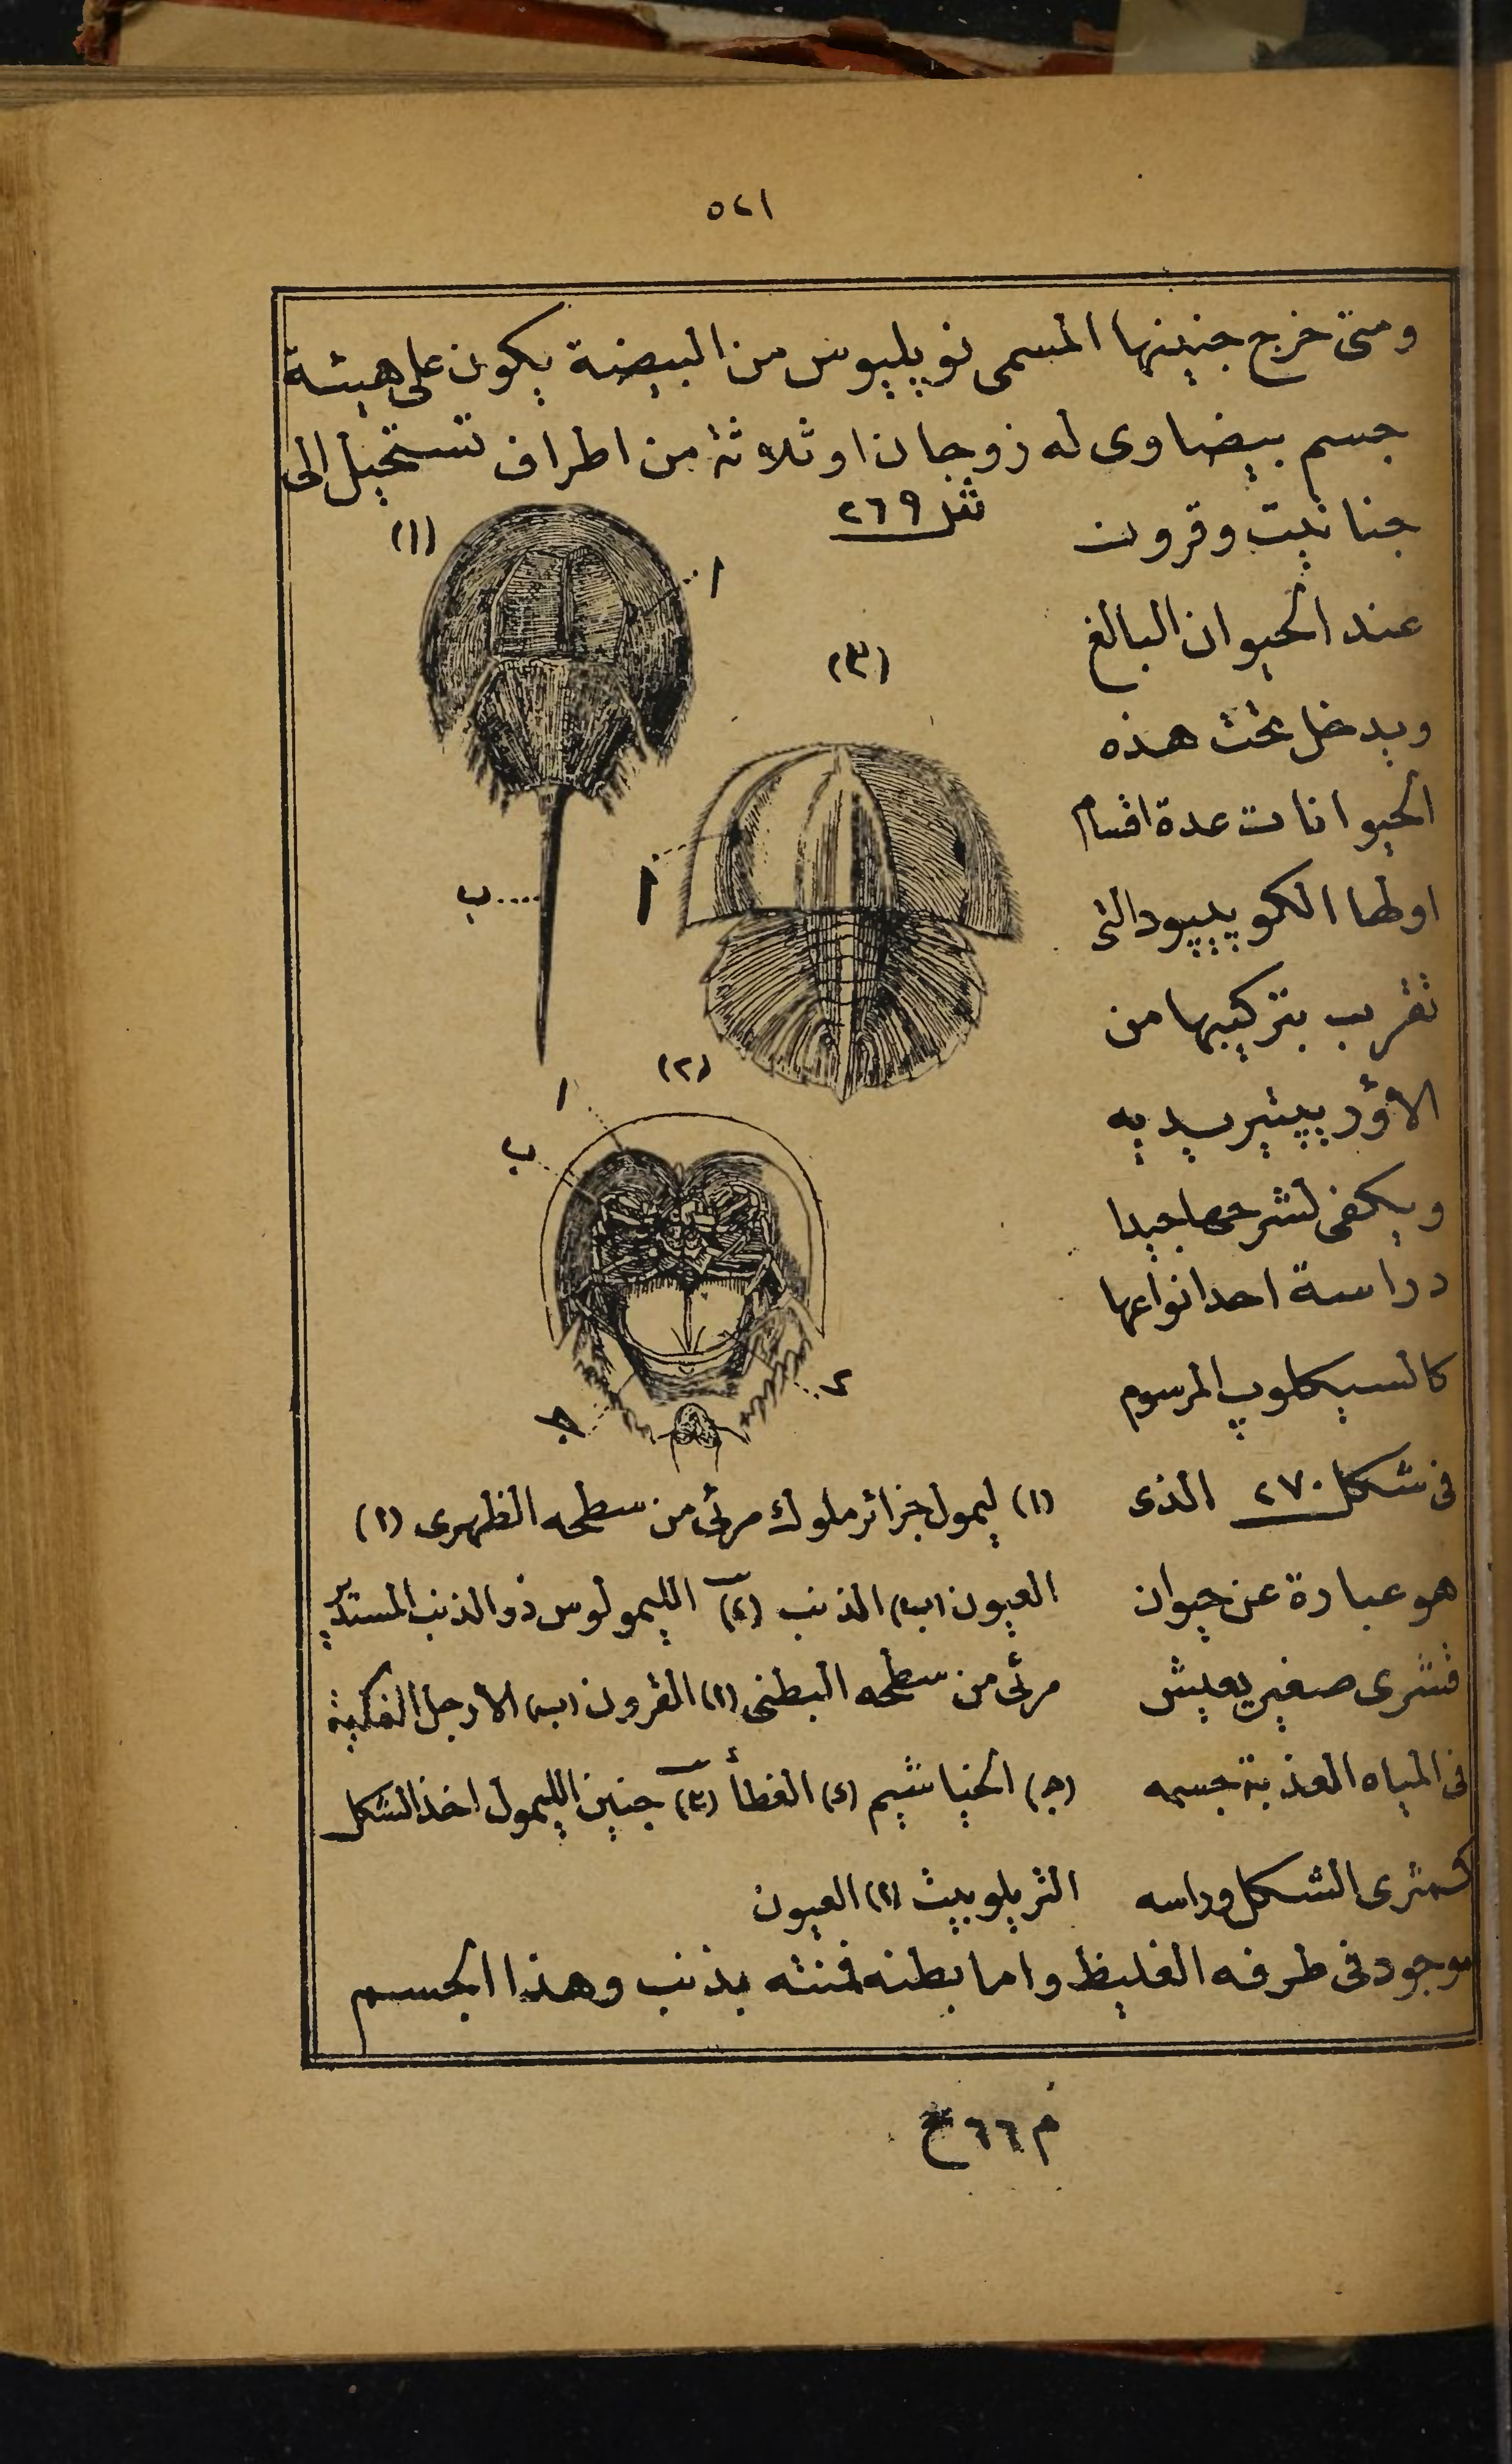 ٥٢١
ومتى خرج جنينها المسمى نوپليوس من البيضة يكون على هيئة
جسم بيضاوى له زوجان او ثلاثة من اطراف تستحيل الى
جنانيت وقرون
عند الحيوان البالغ
ويدخل تحت هذه
الحيوانات عدة اقسام
اولها الكوپيپود التى
تقرب بتركيبها من
ويكفى لشرحها جيدا
دراسة احد انواعها
كالسيكلوپ المرسوم
فى شكل ٢٧٠ الذى
هو عبارة عن حيوان
قشرى صغير يعيش
فى المياه العذبة جسمه
كمثرى الشكل وراسه
موجود فى طرفه الغليظ واما بطنه فمنته بذنب وهذا الجسم
شكل ٢٦٩
(١)
ا
(٣)
ب
ا
(٢)
ا
ب
د
ج
(١) ليمول جزائر ملوك مرئى من سطحه الظهرى (ا)
العيون (ب) الذنب (٢) الليمولوس ذو الذنب المستدير
مرئى من سطحه البطنى (ا) القرون (ب) الارجل الفكية
(ج) الخياشيم (د) الغطأ (٣) جنين الليمول اخذ الشكل
التريلوبيث (ا) العيون
م ٦٦ ح